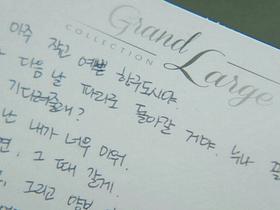 Grand
COLLECTION
Large
아주 작고 예쁜 항구도시야.
다음 날 파리로 돌아갈 거야. 누나
기다려줄래?
난 내가 너무 미워.
그 때 갈게.
그리고